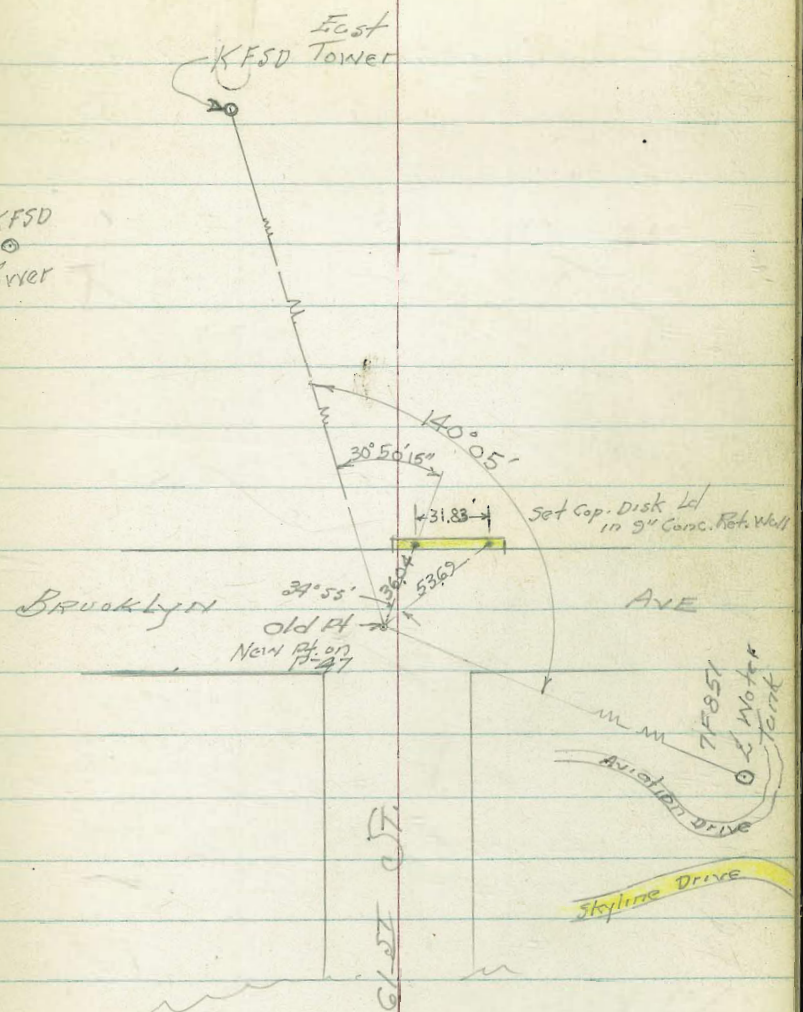 East
KFSD Tower
KFSD
140°05'
30°50'15"
31.83'
Set Cop. Disk Ld
in 9" Conc. Ret. Wall
34°55'
36.04
53.69
BROOKLYN
AVE
Old Pt
New Pt. on
P-47
7F851
Water
Tank
Aviation Drive
Skyline Drive
61 ST ST.